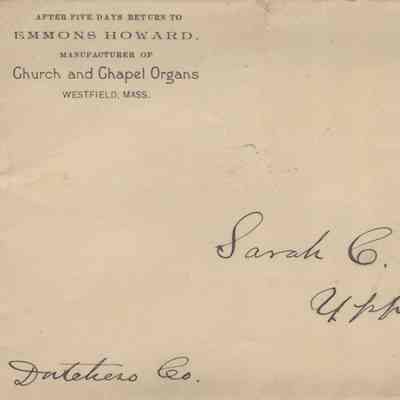 AFTER FIVE DAYS RETURN TO
EMMONS HOWARD,
MANUFACTURER OF
Church and Chapel Organs
WESTFIELD, MASS.
Sarah C.
Upp
Dutchess Co.